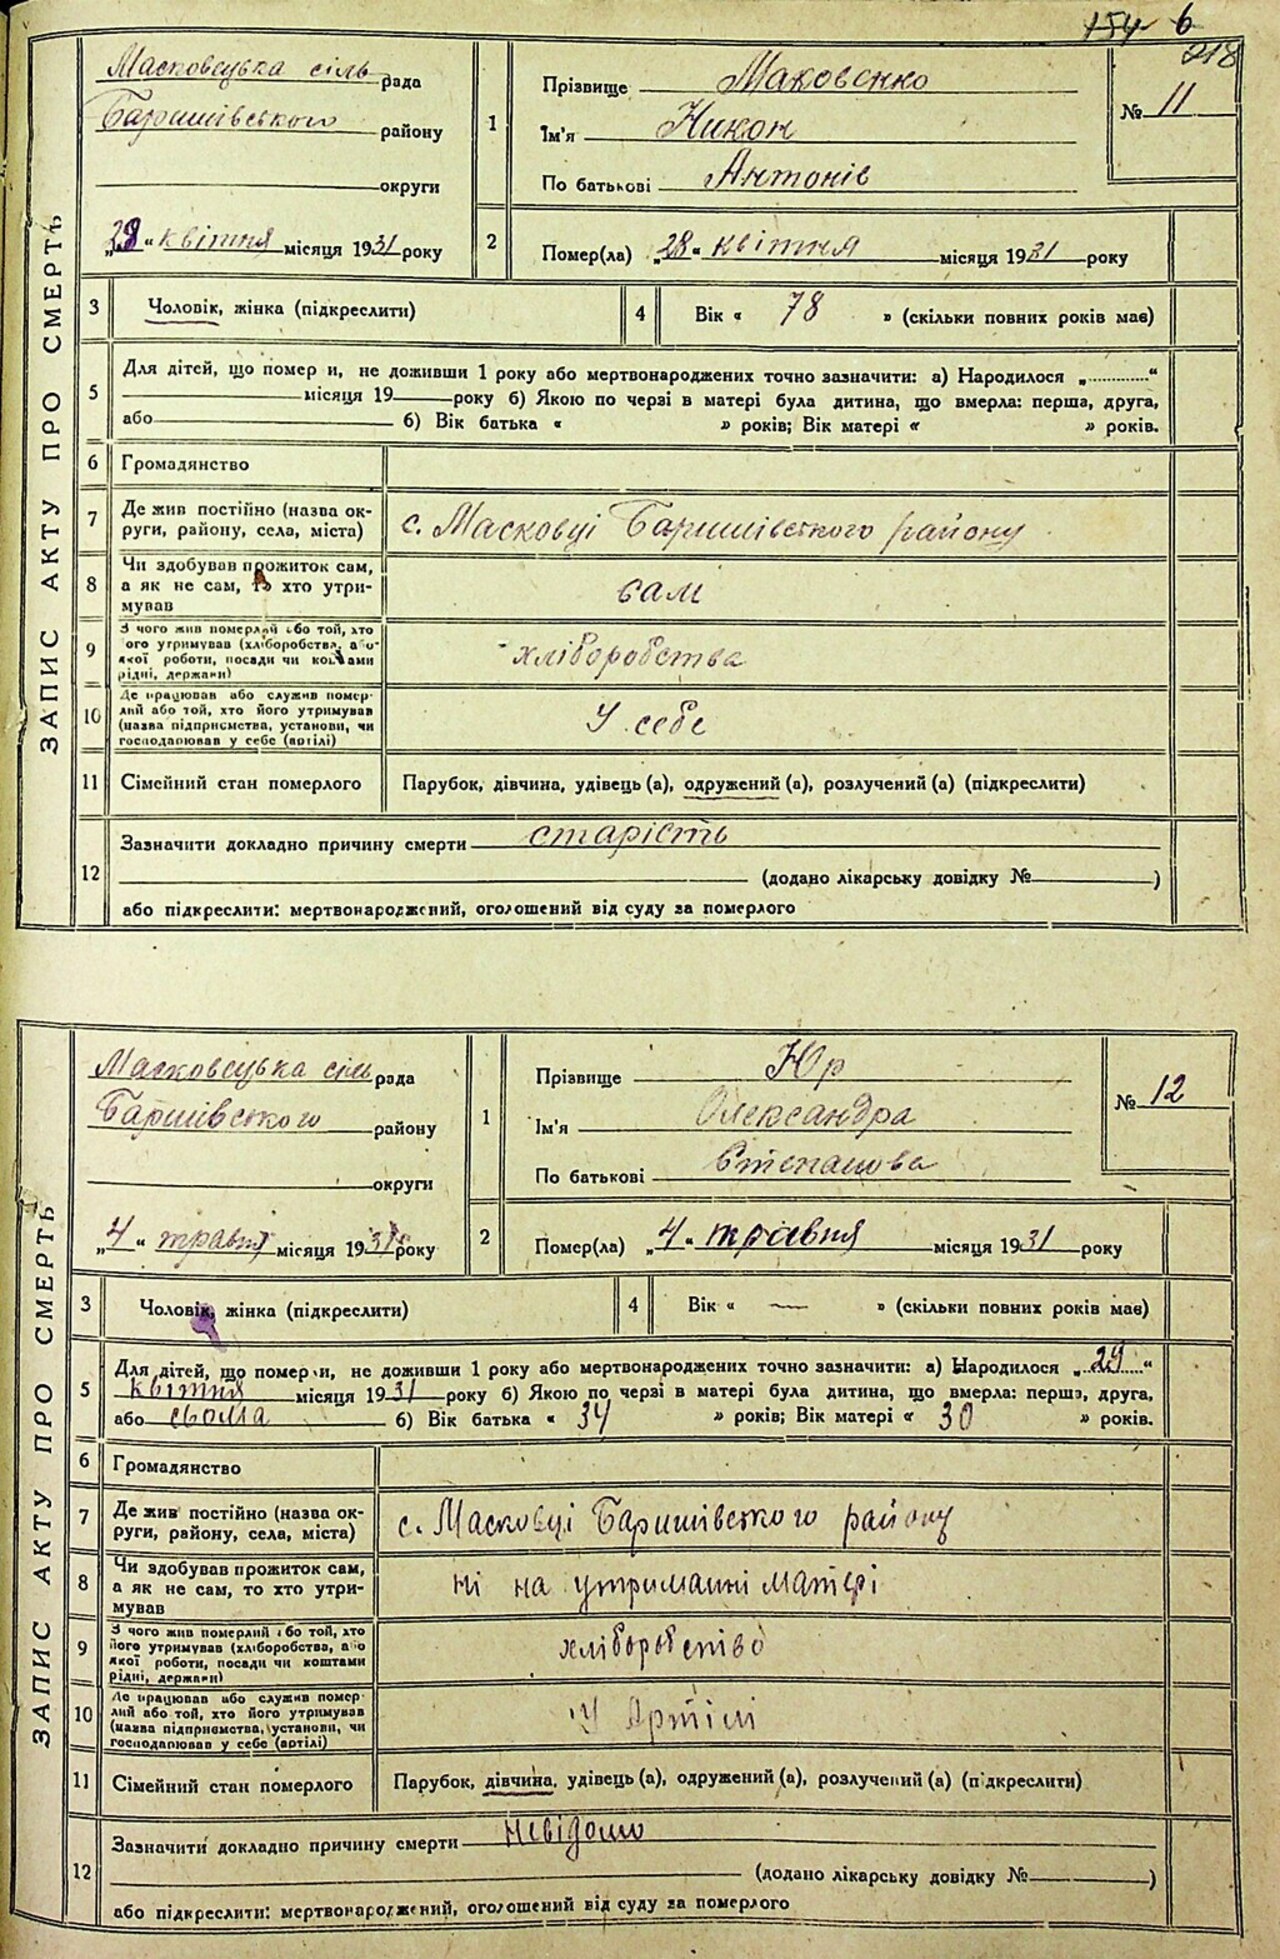 154 6
218
ЗАПИС АКТУ ПРО СМЕРТЬ
Масковецька сіль рада
Баришівського району
округи
„29“ квітня місяця 1931 року
1
Прізвище Маковенко
Ім'я Никон
По батькові Антонів
№ 11
2
Помер(ла) „28“ квітня місяця 1931 року
3 Чоловік, жінка (підкреслити)
4 Вік « 78 » (скільки повних років має)
5 Для дітей, що помер и, не доживши 1 року або мертвонароджених точно зазначити: а) Народилося „..........“
місяця 19 року б) Якою по черзі в матері була дитина, що вмерла: перша, друга,
або б) Вік батька « » років; Вік матері « » років.
6 Громадянство
7 Де жив постійно (назва ок-
руги, району, села, міста)
с. Масковці Баришівського району
8 Чи здобував прожиток сам,
а як не сам, то хто утри-
мував
сам
9 З чого жив померлий або той, хто
його утримував (хліборобства, або
якої роботи, посади чи коштами
рідні, держави)
хліборобства
10 Де працював або служив помер-
лий або той, хто його утримував
(назва підприємства, установи, чи
господарював у себе (артілі)
У себе
11 Сімейний стан померлого
Парубок, дівчина, удівець (а), одружений (а), розлучений (а) (підкреслити)
12 Зазначити докладно причину смерти старість
(додано лікарську довідку № )
або підкреслити: мертвонароджений, оголошений від суду за померлого
ЗАПИС АКТУ ПРО СМЕРТЬ
Масковецька сіль рада
Баршівського району
округи
„4“ травня місяця 1931 року
1
Прізвище Юр
Ім'я Олександра
По батькові Степанова
№ 12
2
Помер(ла) „4“ травня місяця 1931 року
3 Чоловік, жінка (підкреслити)
4 Вік « — » (скільки повних років має)
5 Для дітей, що помер и, не доживши 1 року або мертвонароджених точно зазначити: а) Народилося „29“
квітня місяця 1931 року б) Якою по черзі в матері була дитина, що вмерла: перша, друга,
або сьома б) Вік батька « 34 » років; Вік матері « 30 » років.
6 Громадянство
7 Де жив постійно (назва ок-
руги, району, села, міста)
с. Масковці Баришівського району
8 Чи здобував прожиток сам,
а як не сам, то хто утри-
мував
ні на утриманні матері
9 З чого жив померлий або той, хто
його утримував (хліборобства, або
якої роботи, посади чи коштами
рідні, держави)
хліборобство
10 Де працював або служив помер-
лий або той, хто його утримував
(назва підприємства, установи, чи
господарював у себе (артілі)
У Артілі
11 Сімейний стан померлого
Парубок, дівчина, удівець (а), одружений (а), розлучений (а) (підкреслити)
12 Зазначити докладно причину смерти невідомо
(додано лікарську довідку № )
або підкреслити: мертвонароджений, оголошений від суду за померлого